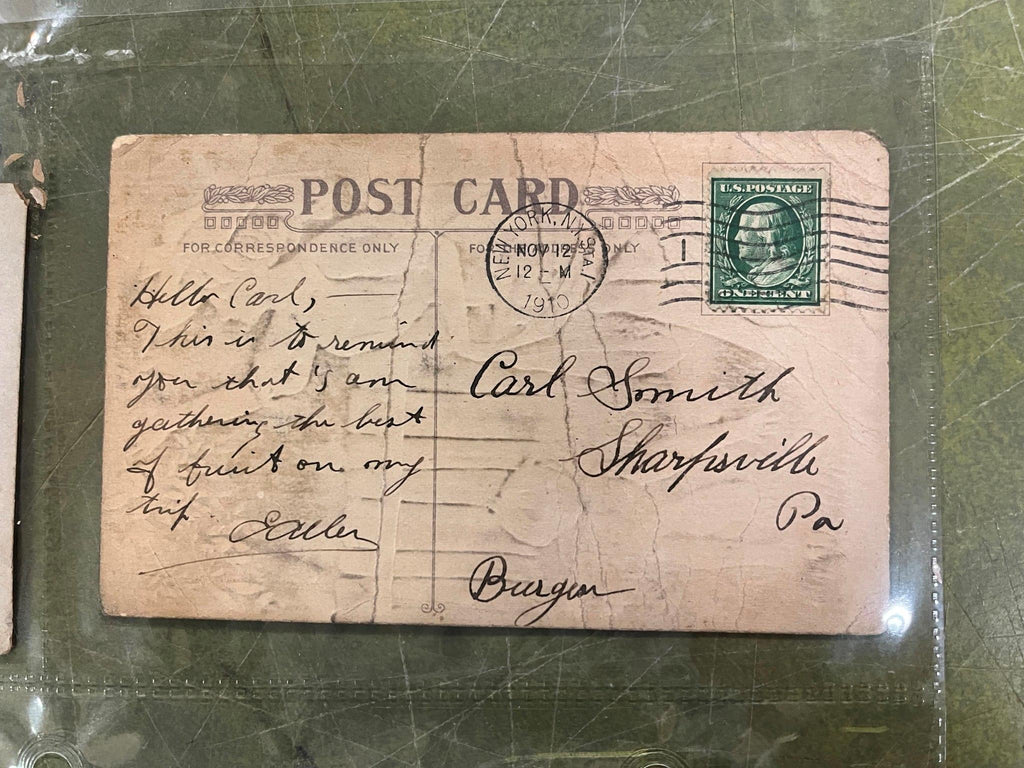 POST CARD
FOR CORRESPONDENCE ONLY
FOR THE ADDRESS ONLY
U.S. POSTAGE
ONE CENT
NEW YORK, N.Y. STA.
NOV 12
12 - M
1910
1
Hello Carl,
This is to remind
you that I am
gathering the best
of fruit on my
trip.
Carl Smith
Sharpsville
Pa